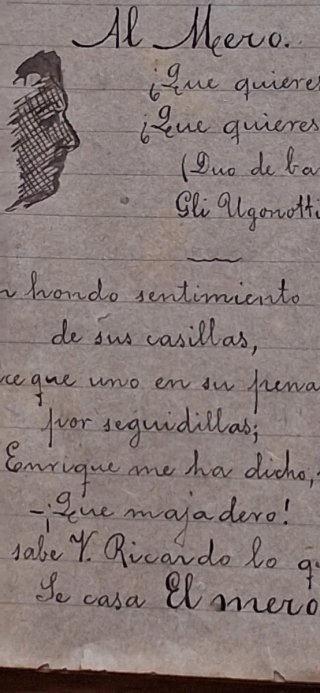 Al Mero.
¿Que quieres
¿Que quieres
(Duo de ba
Gli Ugonotti
n hondo sentimiento
de sus casillas,
ce que uno en su pena
por seguidillas;
Enrique me ha dicho,
-¡Que majadero!
sabe V. Ricardo lo q
Se casa El mero